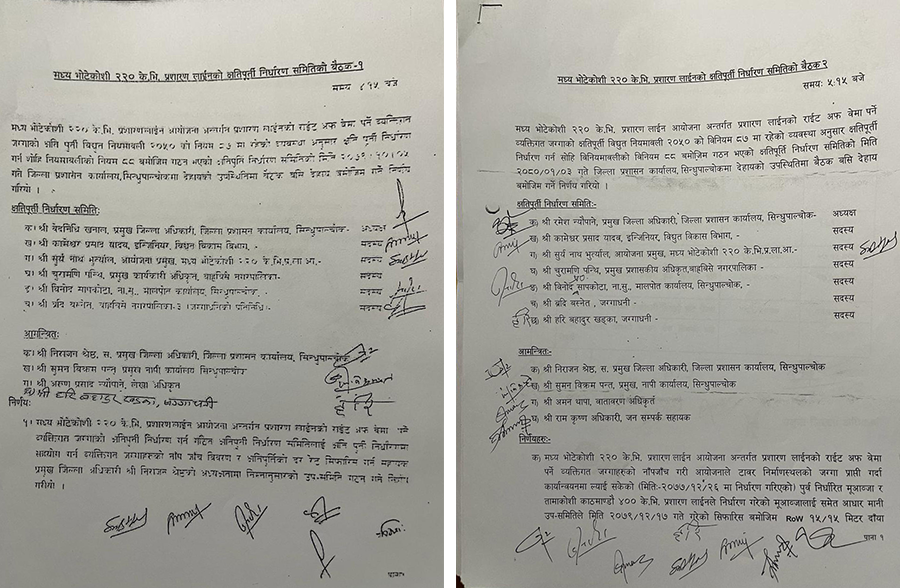 मध्य भोटेकोशी २२० के.भि. प्रशारण लाईनको क्षतिपूर्ती निर्धारण समितिको बैठक-१
समय ८१५ बजे
मध्य भोटेकोशी २२० के.भि. प्रशारणलाईन आयोजना अन्तर्गत प्रशारण लाईनको राईट अफ वेमा पर्ने व्यक्तिगत
जग्गाको क्षति पुर्ती विद्युत नियमावली २०५० को नियम ८७ मा रहेको व्यवस्था अनुसार क्षति पुर्ती निर्धारण
गर्न सोहि नियमावलीको नियम ८८ बमोजिम गठन भएको क्षतिपुर्ति निर्धारण समितिको मिति
गते जिल्ला प्रशासन कार्यालय,सिन्धुपाल्चोकमा देहायको उपस्थितिमा बैठक बसि देहाय बमोजिम गर्ने निर्णय
गरियो ।
क्षतिपूर्ती निर्धारण समिति:
क) श्री वेदनिधि खनाल, प्रमुख जिल्ला अधिकारी, जिल्ला प्रशासन कार्यालय, सिन्धुपाल्चोक- अध्यक्ष
ख) श्री कामेश्वर प्रसाद यादव, इन्जिनियर, विद्युत विकास विभाग, - सदस्य
ग) श्री सुर्य नाथ भुर्त्याल, आयोजना प्रमुख, मध्य भोटेकोशी २२० के.भि.प्र.ला.आ.- सदस्य
घ) श्री चुरामणि पन्थि, प्रमुख कार्यकारी अधिकृत, बाह्रबिसे नगरपालिका- सदस्य
ङ) श्री विनोद सापकोटा, ना.सु., मालपोत कार्यालय, सिन्धुपाल्चोक, - सदस्य
च) श्री बद्रि बस्नेत, बाह्रबिसे नगरपालिका-३ (जग्गाधनिको प्रतिनिधि)- सदस्य
आमन्त्रित:
क) श्री निराजन श्रेष्ठ, स. प्रमुख जिल्ला अधिकारी, जिल्ला प्रशासन कार्यालय, सिन्धुपाल्चोक
ख) श्री सुमन विक्रम पन्त, प्रमुख नापी कार्यालय सिन्धुपाल्चोक
ग) श्री अरुण प्रसाद न्यौपाने, लेखा अधिकृत
घ) श्री हरि बहादुर खड्का, जग्गाधनी
हरि
निर्णय:
१) मध्य भोटेकोशी २२० के.भि. प्रशारण लाईन आयोजना अन्तर्गत प्रशारणलाईनको राईट अफ वे मा पर्ने
व्यक्तिगत जग्गाको क्षतिपुर्ती निर्धारण गर्न गठित क्षतिपुर्ती निर्धारण समितिलाई क्षति पुर्ती निर्धारणमा
सहयोग गर्न व्यक्तिगत जग्गाहरुको नाँप जाँच विवरण र क्षतिपुर्तिको दर रेट सिफारिस गर्न सहायक
प्रमुख जिल्ला अधिकारी श्री निराजन श्रेष्ठको अध्यक्षतामा निम्नानुसारको उप-समिति गठन गर्ने निर्णय
गरियो ।
मध्य भोटेकोशी २२० के.भि. प्रशारण लाईनको क्षतिपूर्ती निर्धारण समितिको बैठक २
समय: ५.१५ बजे
मध्य भोटेकोशी २२० के.भि. प्रशारण लाईन आयोजना अन्तर्गत प्रशारण लाईनको राईट अफ वेमा पर्ने
व्यक्तिगत जग्गाको क्षतिपूर्ती विद्युत नियमावली २०५० को विनियम ८७ मा रहेको व्यवस्था अनुसार क्षतिपूर्ती
निर्धारण गर्न सोहि विनियमावलीको विनियम ८८ बमोजिम गठन भएको क्षतिपूर्ती निर्धारण समितिको मिति
२०८०/०१/०३ गते जिल्ला प्रशासन कार्यालय, सिन्धुपाल्चोकमा देहायको उपस्थितिमा बैठक बसि देहाय
बमोजिम गर्ने निर्णय गरियो ।
क्षतिपूर्ती निर्धारण समिति:-
क) श्री रमेश न्यौपाने, प्रमुख जिल्ला अधिकारी, जिल्ला प्रशासन कार्यालय, सिन्धुपाल्चोक- अध्यक्ष
ख) श्री कामेश्वर प्रसाद यादव, इन्जिनियर, विद्युत विकास विभाग, - सदस्य
ग) श्री सुर्य नाथ भुर्त्याल, आयोजना प्रमुख, मध्य भोटेकोशी २२० के.भि.प्र.ला.आ.- सदस्य
घ) श्री चुरामणि पन्थि, प्रमुख प्रशासकीय अधिकृत,बाह्रबिसे नगरपालिका - सदस्य
ङ) श्री विनोद सापकोटा, ना.सु., मालपोत कार्यालय, सिन्धुपाल्चोक, - सदस्य
च) श्री बद्रि बस्नेत , जग्गाधनी - सदस्य
हरि छ) श्री हरि बहादुर खड्का, जग्गाधनी -
आमन्त्रित:-
क) श्री निराजन श्रेष्ठ, स. प्रमुख जिल्ला अधिकारी, जिल्ला प्रशासन कार्यालय, सिन्धुपाल्चोक
ख) श्री सुमन विक्रम पन्त, प्रमुख, नापी कार्यालय, सिन्धुपाल्चोक
ग) श्री अमन थापा, वातावरण अधिकृत
घ) श्री राम कृष्ण अधिकारी, जन सम्पर्क सहायक
निर्णयहरु:-
क) मध्य भोटेकोशी २२० के.भि. प्रशारण लाईन आयोजना अन्तर्गत प्रशारण लाईनको राईट अफ वेमा
पर्ने व्यक्तिगत जग्गाहरुको नाँपजाँच गरी आयोजनाले टावर निर्माणस्थलको जग्गा प्राप्ती गर्दा
कार्यान्वयनमा ल्याई सकेको (मिति:-२०७७/१२/२६ मा निर्धारण गरिएको) पुर्व निर्धारित मूआब्जा र
तामाकोशी काठमाण्डौ ४०० के.भि. प्रशारण लाईनले निर्धारण गरेको मूआब्जालाई समेत आधार मानी
उप-समितिले मिति २०७९/१२/१७ गते गरेको सिफारिस बमोजिम RoW १५/१५ मिटर दाँया
हरि
पाना १